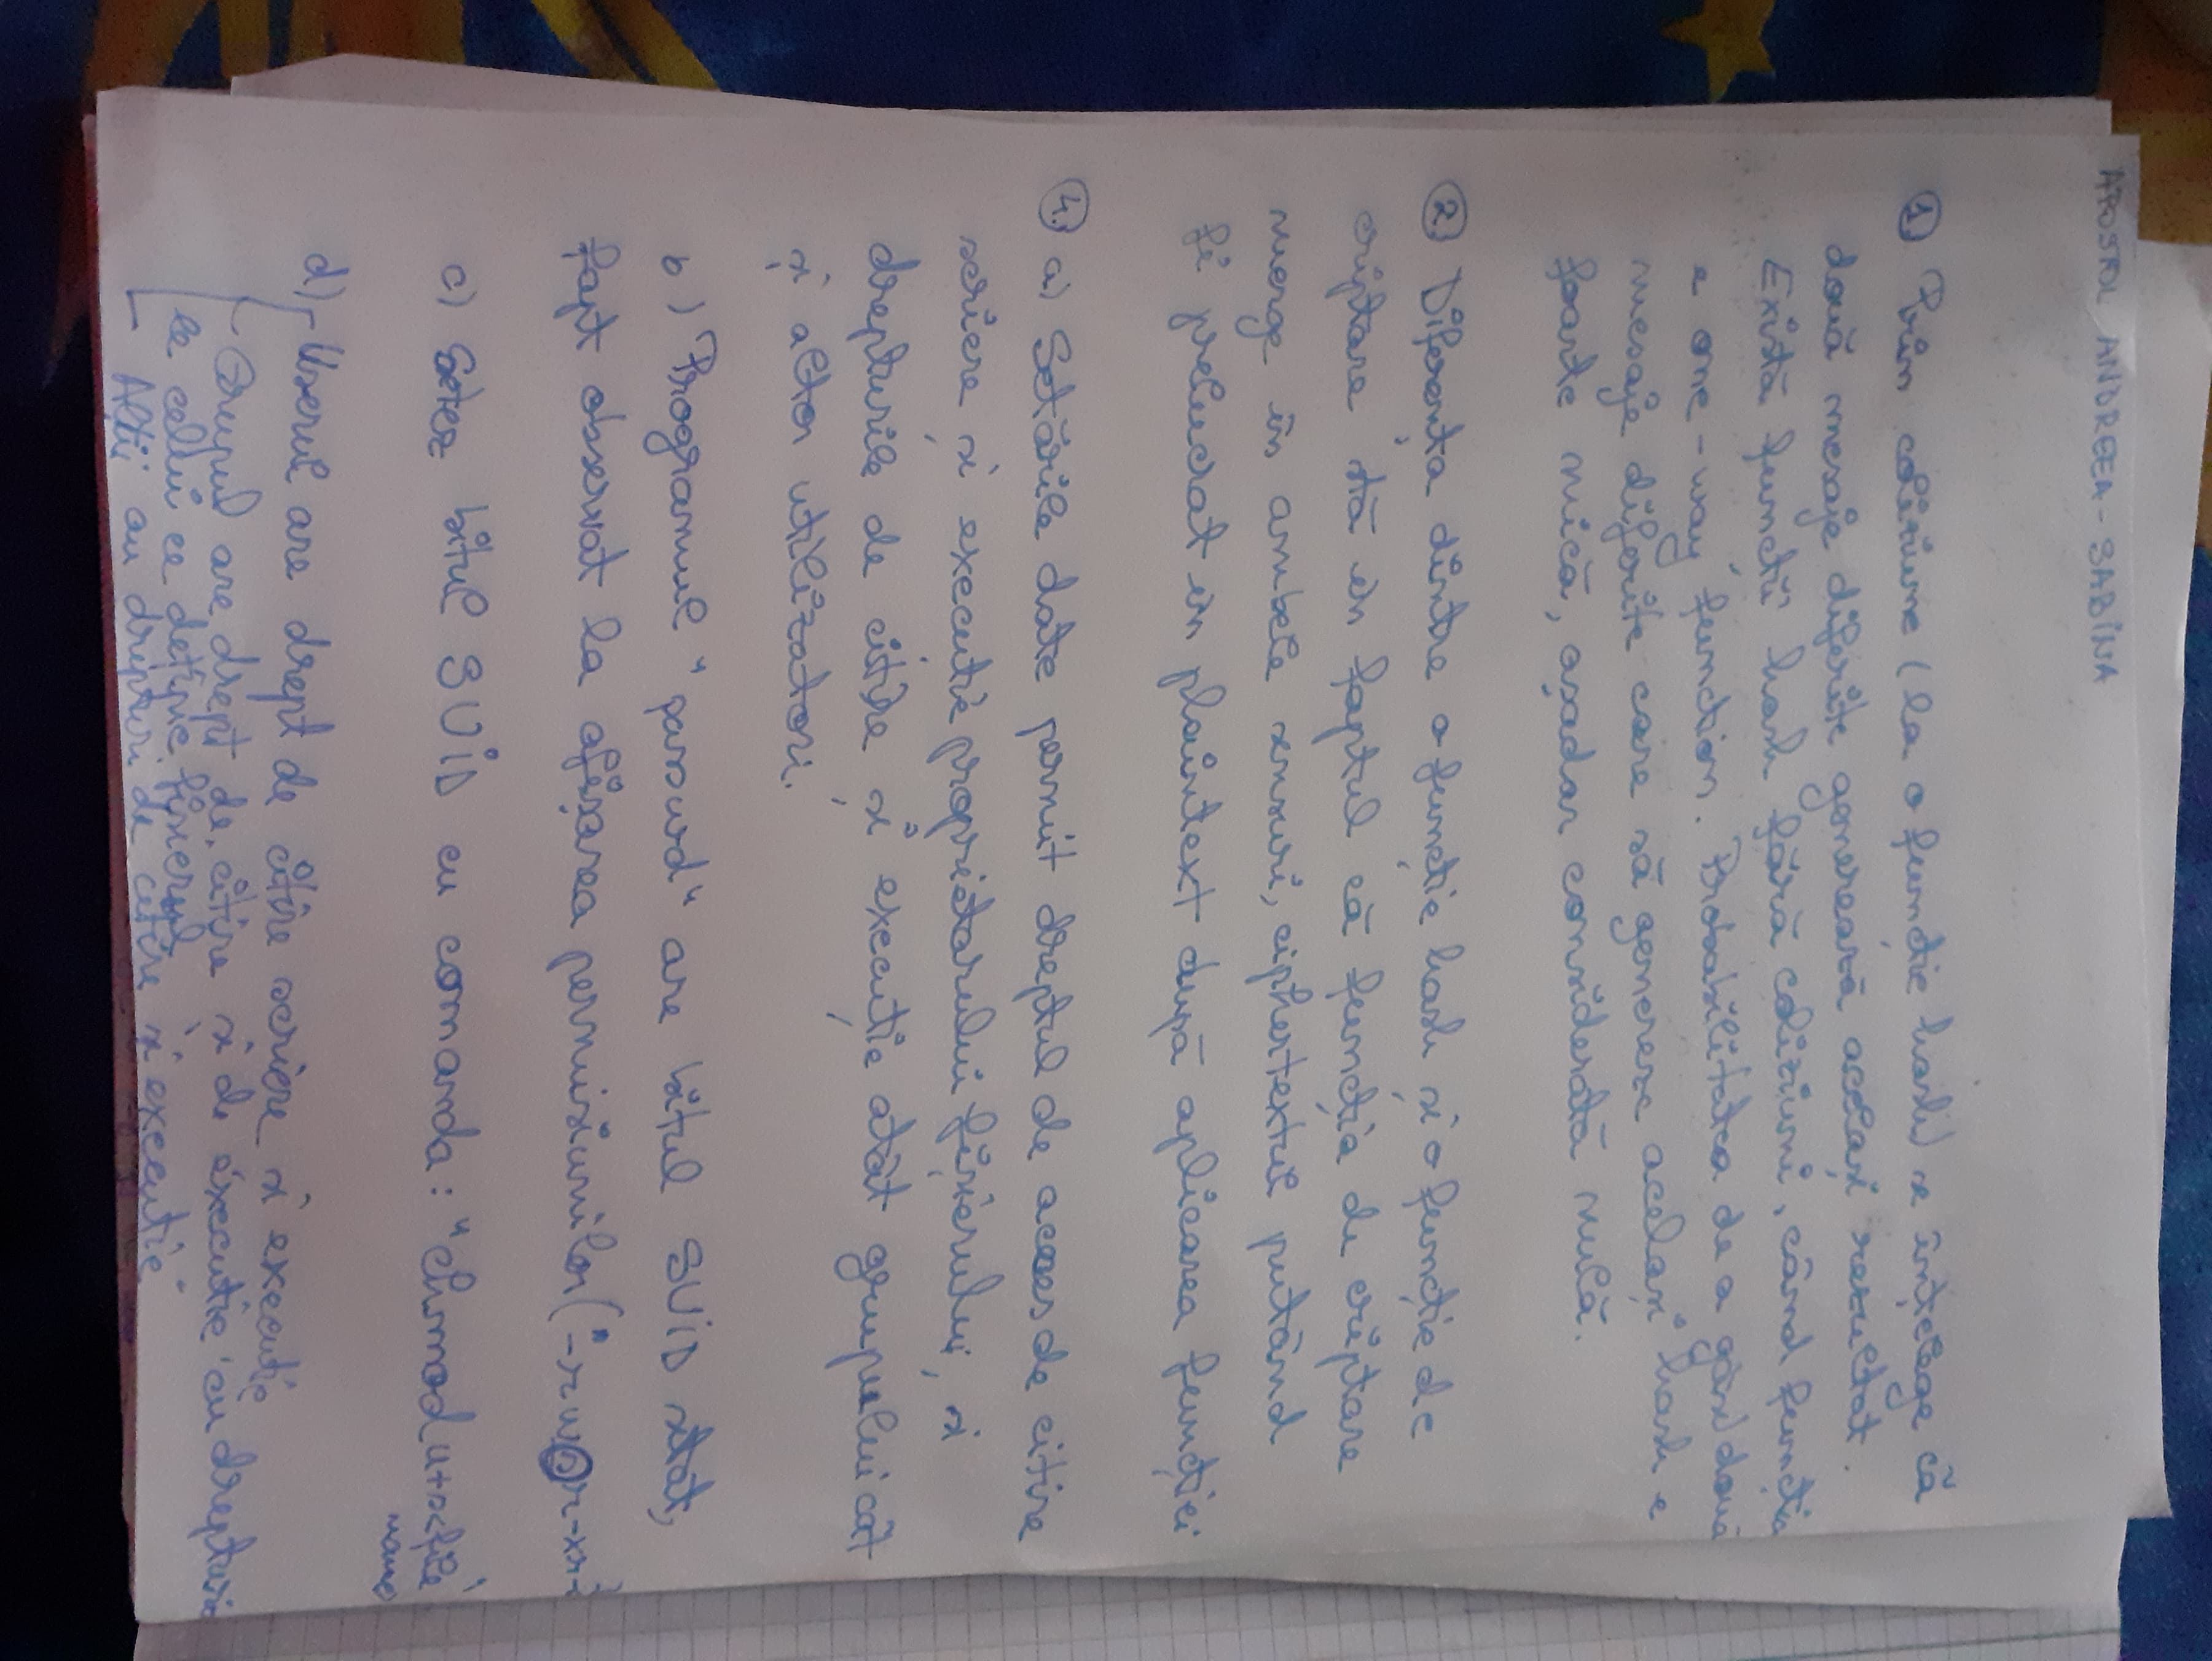 APOSTOL ANDREEA-SABINA
① Prin coliziune (la o funcție hash) se înțelege că
două mesaje diferite generează același rezultat.
Există funcții hash fără coliziuni, când funcția
e one-way function. Probabilitatea de a găsi două
mesaje diferite care să genereze același hash e
foarte mică, așadar considerată nulă.
② Diferența dintre o funcție hash și o funcție de
criptare stă în faptul că funcția de criptare
merge în ambele sensuri, ciphertextul putând
fi prelucrat în plaintext după aplicarea funcției
④ a) Setările date permit dreptul de acces de citire
scriere și execuție proprietarului fișierului, și
drepturile de citire și execuție atât grupului cât
și altor utilizatori.
b) Programul "passwd" are bitul SUID setat,
fapt observat la afișarea permisiunilor ("-rwsr-xr-
c) Setez bitul SUID cu comanda: "chmod u+s<file
name>
d) - Userul are drept de citire scriere și execuție
- Grupul are drept de citire și de execuție cu drepturile
le celui ce deține fișierul
- Alții au drepturi de citire și execuție.